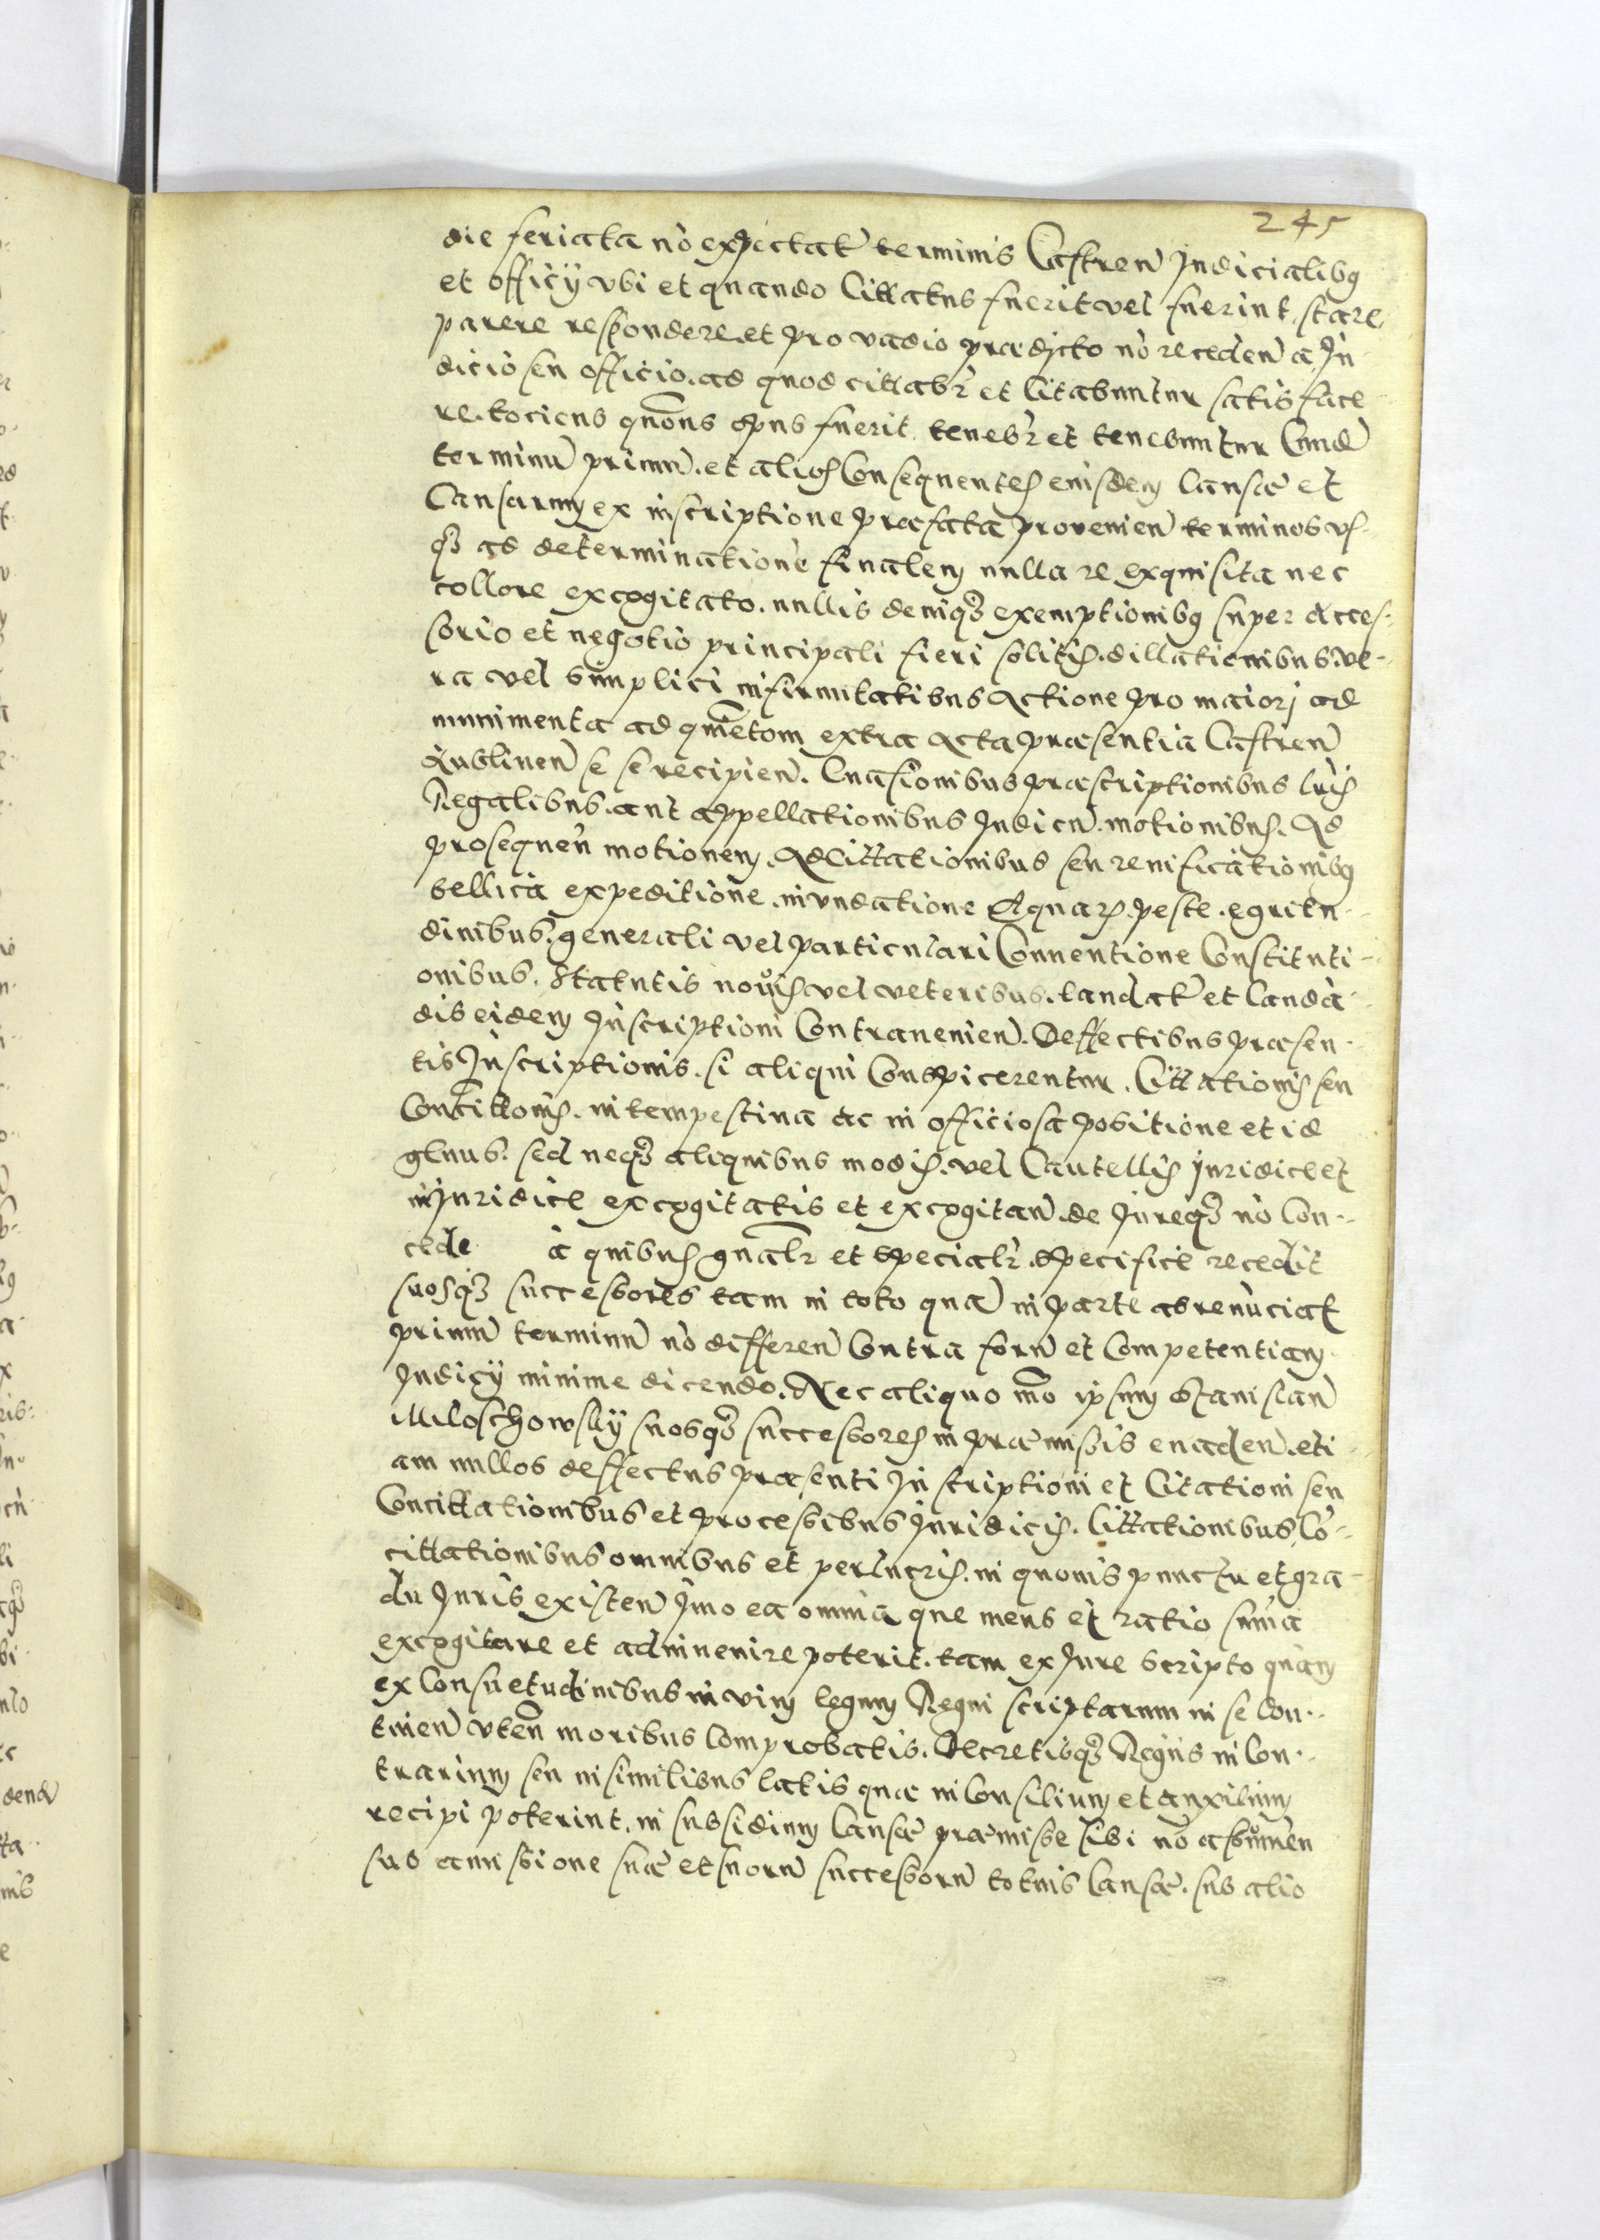 245
die feriata nō expectat̄ terminis Castren̄ Judicialibꝫ
et officÿ vbi et quando Cittatus fuerit vel fuerint, stare,
parere respondere. et pro vadio prædicto nō receden̄ a Ju-
dicio seu officio. ad quod cittabr̄ et Citabuntur satisface
re. tociens quōns opus fuerit tenebr̄ et tenebuntur Eund̄
terminū primū. et alios Consequentes eiusdem Causæ et
Causarum ex inscriptione præfata prouenien̄ terminos vs-
qꝫ ad determinationē finalem nulla re exquisita nec
collore excogitato. nullis deniqꝫ exemptionibꝫ super Acces-
sorio et negotio principali fieri solitis. dillationibus. ve-
ra vel simplici infirmitatibus Actione pro maiorj ad
munimenta ad quietom̄ extra Acta præsentia Castren̄
Lublinen̄ se se recipien̄. Euasionibus præscriptionibus Lrīs
Regalibus. aut appellationibus Judicū. motionibus. Ad
prosequen̄ motionem. Adcittationibus seu reuificationibꝫ
bellica expeditione. inundatione Aquarꝫ. peste. egritu-
dinibus. generali vel particulari Conuentione Constituti-
onibus. Statutis nouis vel veteribus. laudat̄ et lauda-
dis eidem Inscriptioni Contrauenien̄. Deffectibus præsen-
tis Inscriptionis. si aliqui Conspicerentur. Cittationis seu
Concittōnis. intempestiua ac in officiosa positione et id
gēnus. sed neqꝫ aliquibus modis. vel Cautellis Juridice et
inJuridice excogitatis et excogitan̄. de Jureqꝫ nō Con-
cede à quibus gnālr̄ et specialr̄. specifice recedit
suosqꝫ successores tam in toto quā in parte abrenūciat
primū terminū nō differen̄ Contra forū et Competentiam
Judicÿ minime dicendo. Nec aliquo mōo ipsum Stanislaū
Miloschowsky suosqꝫ successores in præmissis euaden̄. eti-
am nullos deffectus præsenti Inscriptioni et Citationi seu
Concittationibus et processibus Juridicis. Cittationibus, Cō-
cittationibus omnibus et perlucris. in quouis punctu et gra-
du Juris existen̄ Jmo ea omnia que mens et ratio summa
excogitare et adinuenire poterit. tam ex Jure scripto quam
ex Consuetudinibus in vim legum Regni scriptarum in se Con-
tinen̄ vten̄ moribus Comprobatis. Decretisqꝫ Regīis in Con-
trarium seu in similibus latis quæ in Consilium et auxilium
recipi poterint. in subsidium Causæ præmisse sibi nō assumen
sub amissione suæ et suorū successorū totius Causæ. sub alio